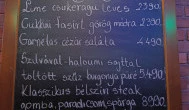 Lime csukeragu leves 2390.
Cukkini fasírt görög metéra 2390.
Garnélás cézár saláta 4490.
Szilvával-haloumi sajttal
töltött szűz burgonya püré 5.490.
Klasszikus bélszíni steak
gomba, paradicsom, spárga 8990.